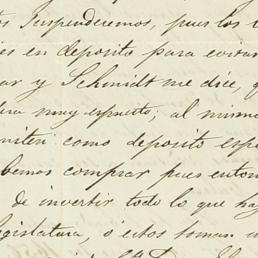 Suspenderemos, pues los
en deposito para evitar
ar y Schmidt me dice, q
muy espuesto; al mismo
miten como deposito esp
bemos comprar pues enton
de invertir todo lo que hay
gislatura, ó estos toman u